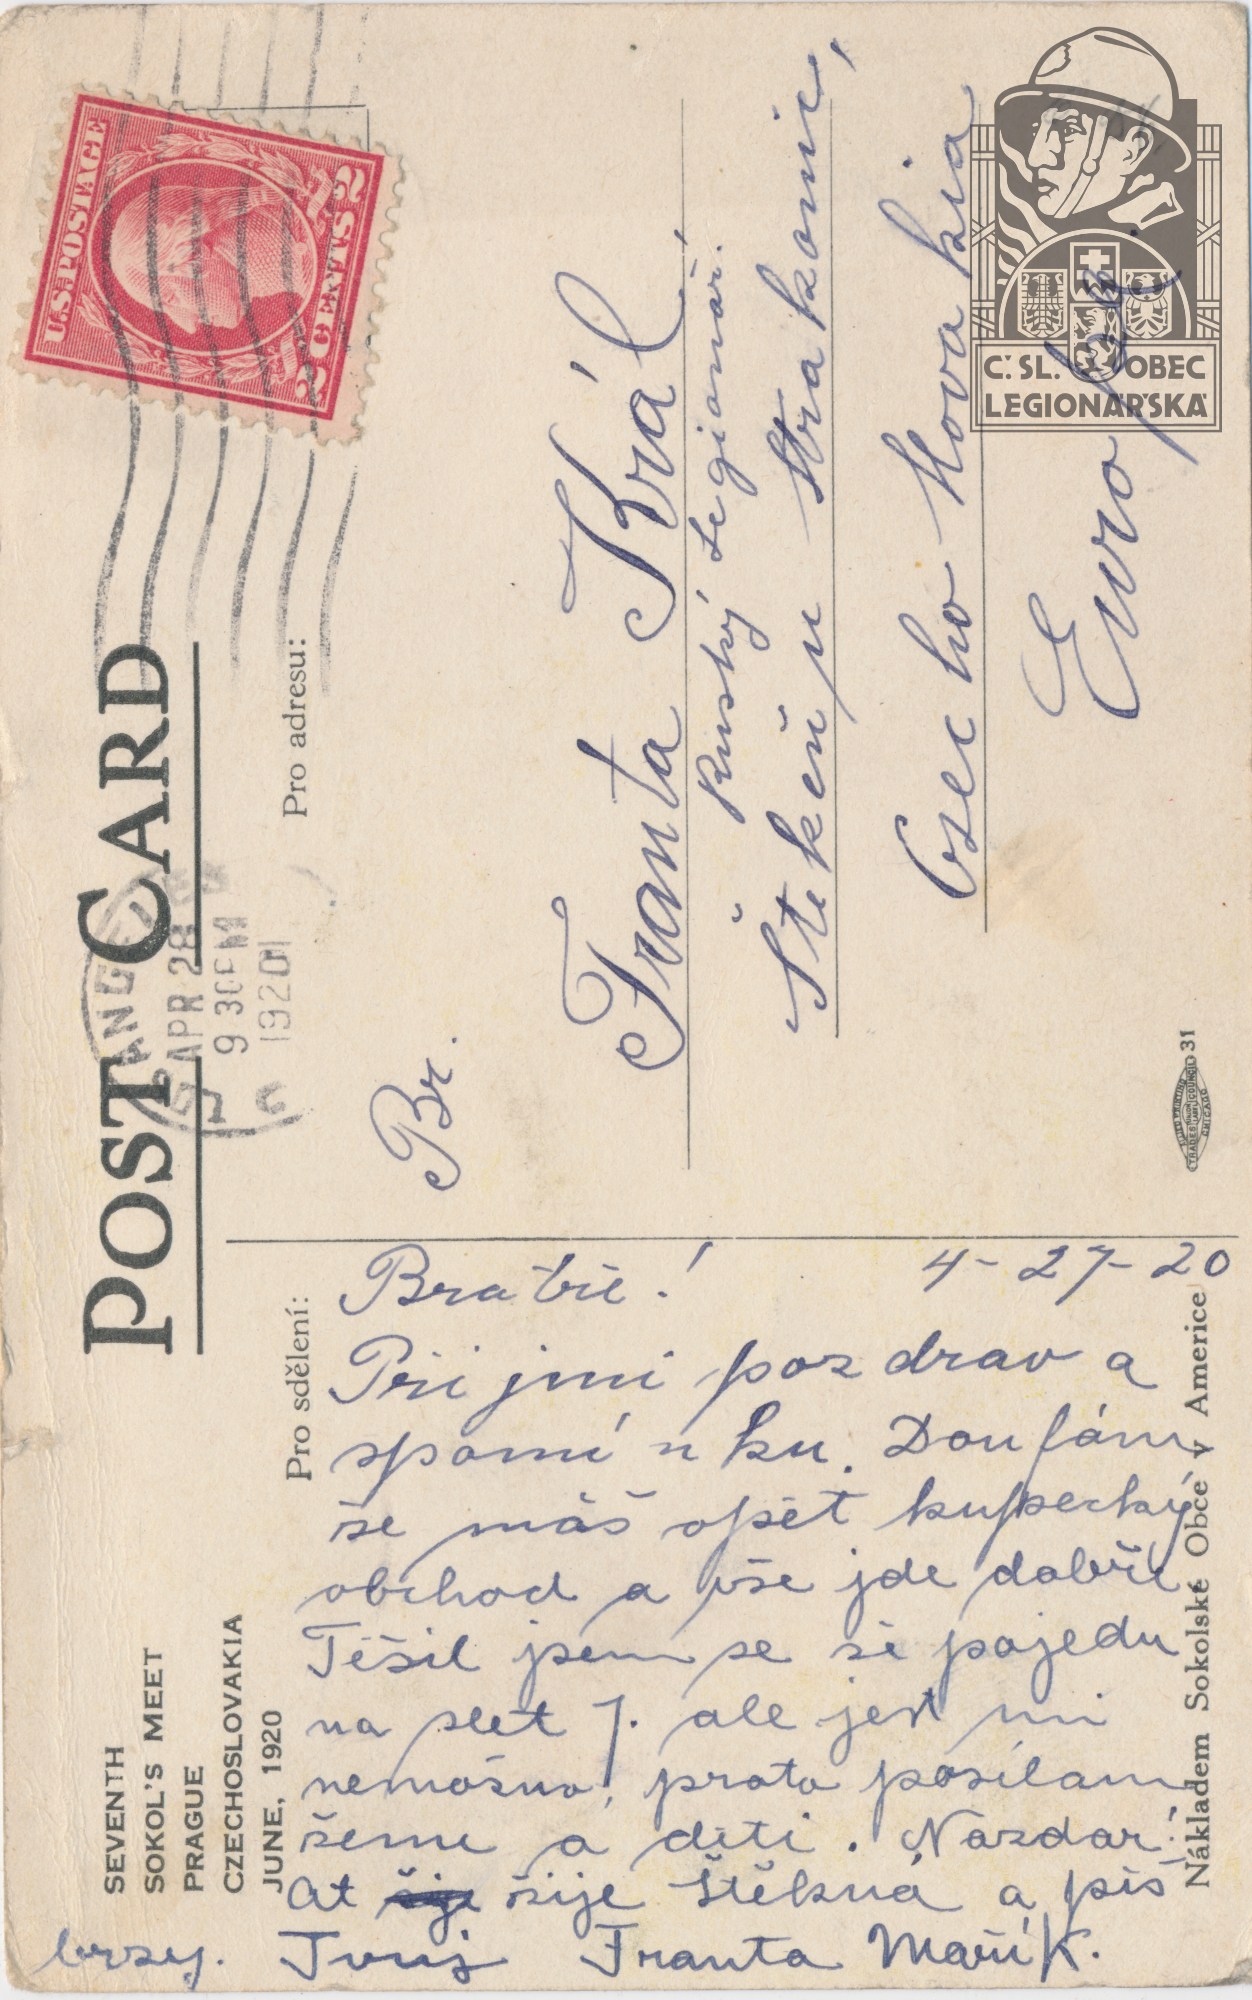 SEVENTH
SOKOL'S MEET
PRAGUE
CZECHOSLOVAKIA
JUNE, 1920
POST CARD
ANGELES
APR 28
9 30 PM
1920
U.S. POSTAGE
2 CENTS 2
Pro sdělení:
Bratře! 4-27-20
Přijmi pozdrav a
spomínku. Doufám
že máš opět kupecký
obchod a vše jde dobře.
Těšil jsem se že pojedu
na slet 7. ale jest mi
nemožno, proto posílam
ženu a děti. Nazdar!
At žije Štěkná a piš
brzy. Tvuj Franta Mařík.
Pro adresu:
Br.
Franta Král
Ruský Legionář.
Štekeň u Strakonic,
Czecho Slovakia
Europe.
Nákladem Sokolské Obce v Americe
ALLIED PRINTING
TRADES UNION LABEL COUNCIL
CHICAGO
31
Č. SL. OBEC
LEGIONÁŘSKÁ